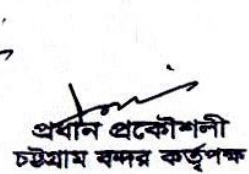 প্রধান প্রকৌশলী
চট্টগ্রাম বন্দর কর্তৃপক্ষ